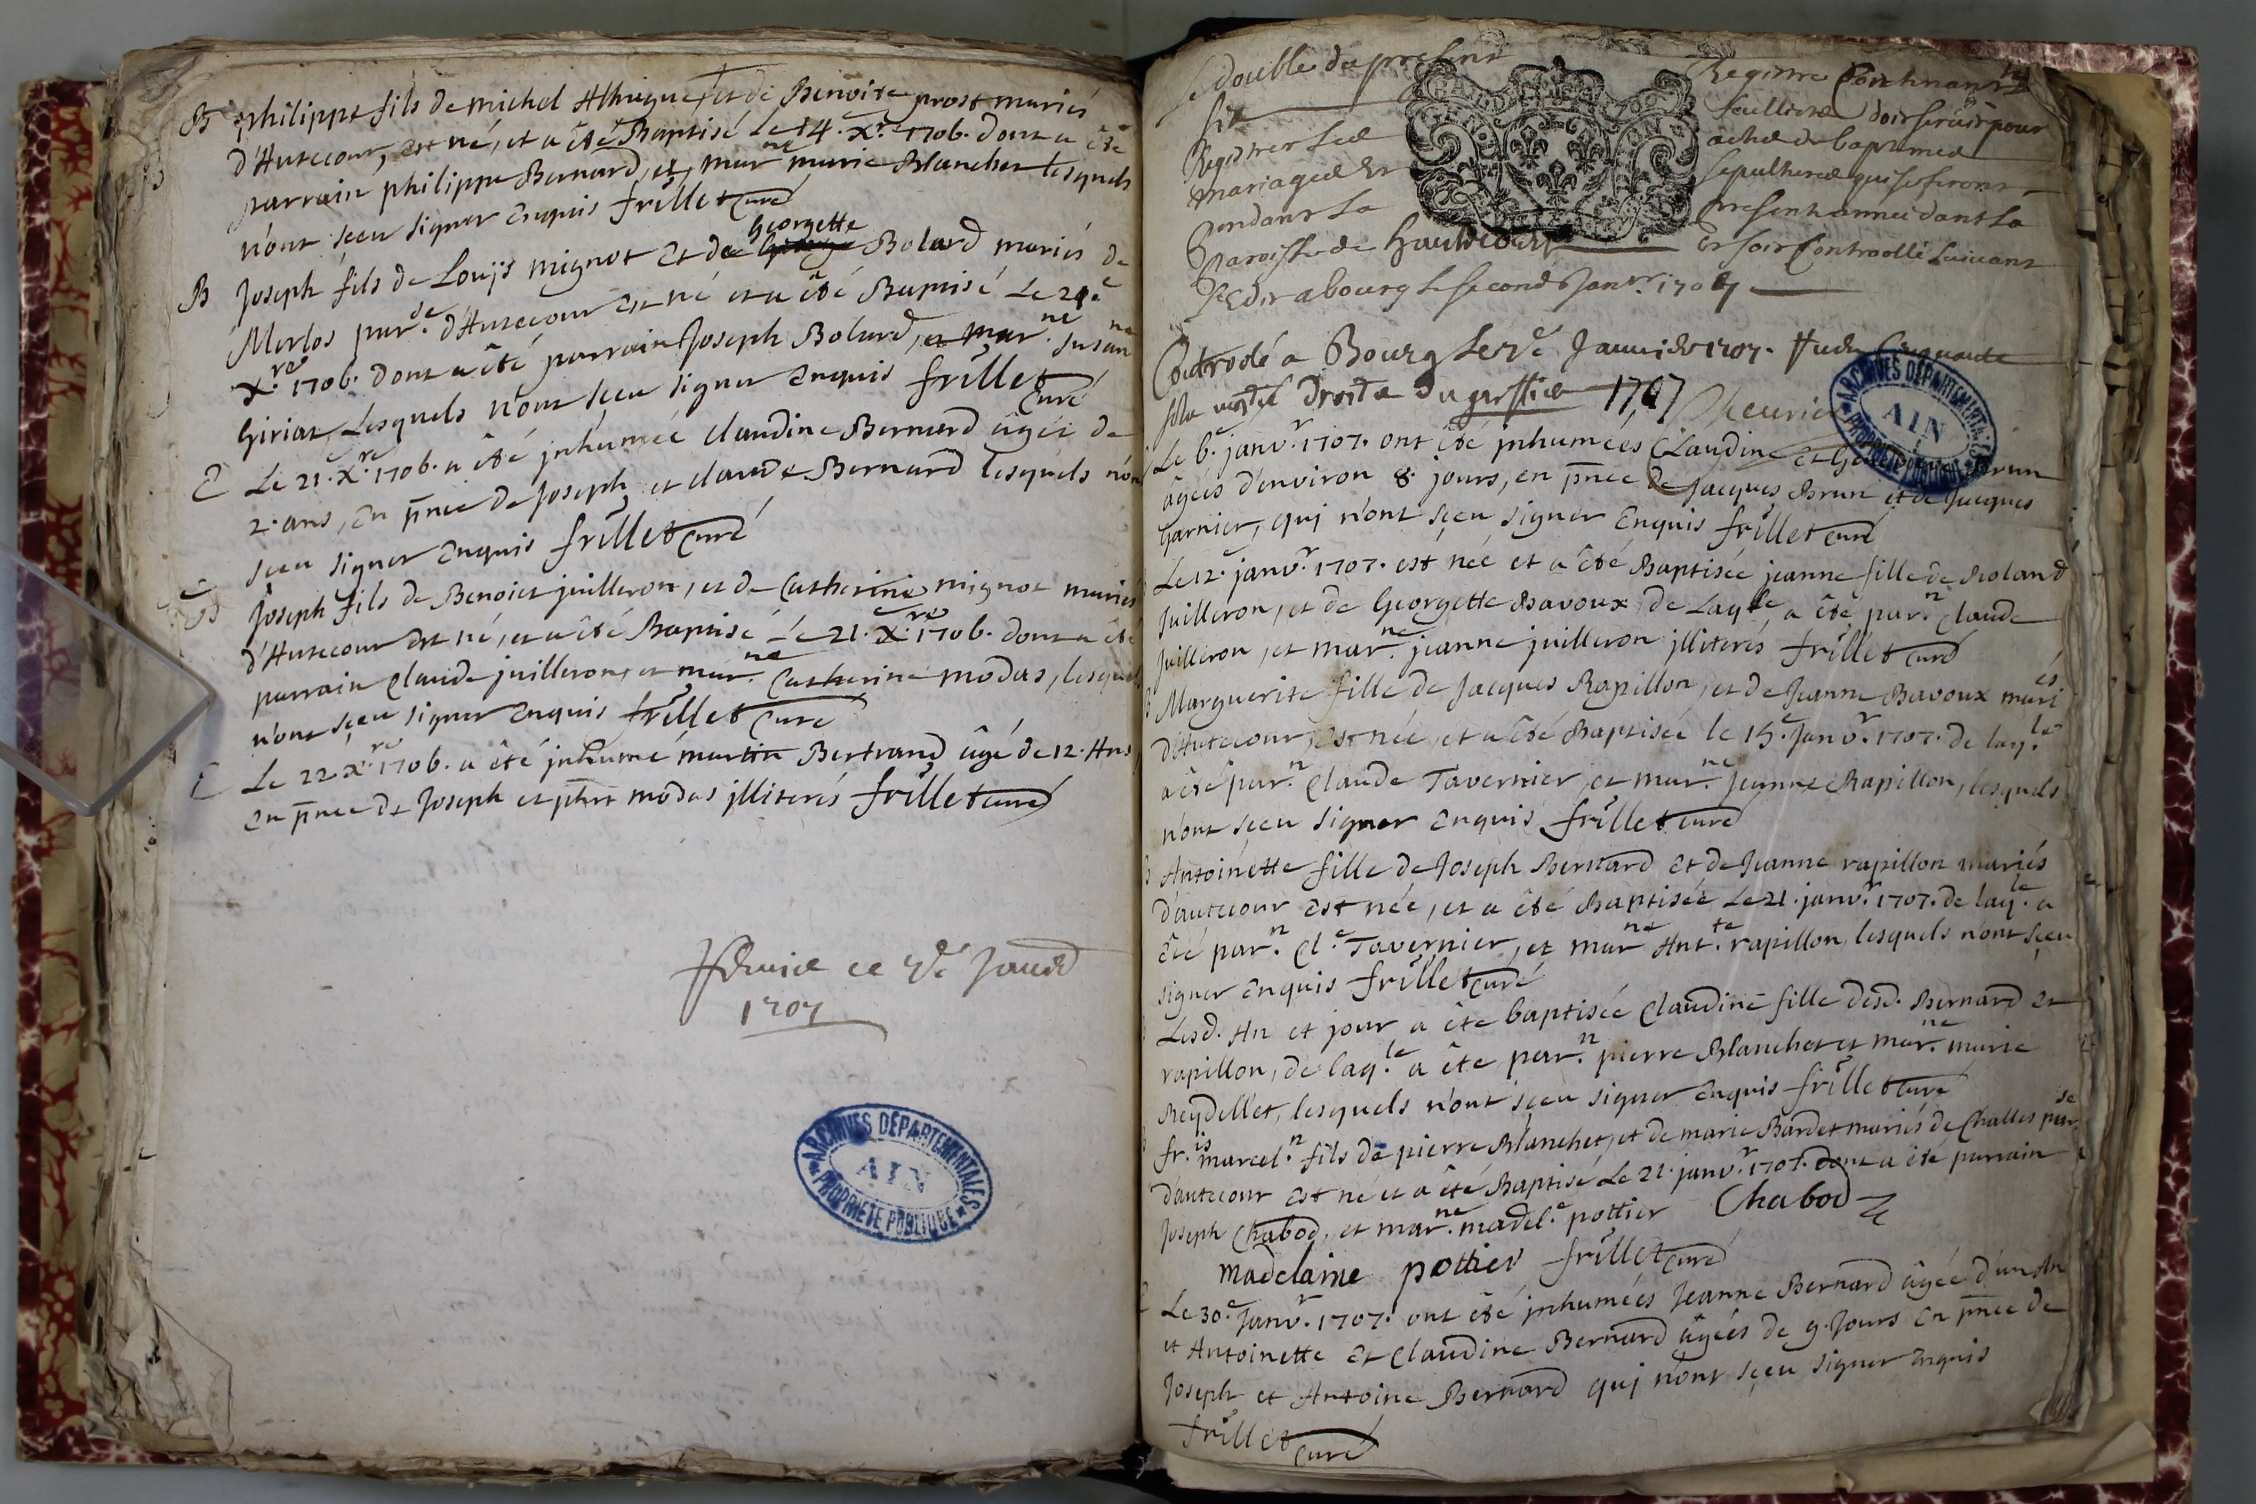 B philippe fils de michel et de Benoite prost mariés
d'Hutecour, est né, et a été Baptisé Le 14. Xre 1706. dont a été
parrain philippe Bernard, et marne marie Blanchet lesquels
n'ont sçeu signer Enquis frillet Curé
Georgette
B Joseph fils de Louijs mignot Et de Bolard mariés de
Merlos parse d'Hutecour Est né et a été Baptisé Le 20e
Xre 1706. dont a été parrain Joseph Bolard, et marne Susanne
Giriat, Lesquels n'ont sçeu signer Enquis frillet Curé
E Le 21. Xre 1706. a été jnhumée claudine Bernard âgée de
2. ans, En pñce de Joseph et claude Bernard lesquels n'ont
sçeu signer Enquis frillet Curé
B Joseph fils de Benoict juilleron, et de Catherine mignot mariés
d'Hutecour Est né, et a été Baptisé Le 21. Xre 1706. dont a été
parrain Claude juilleron, et marne Catherine modas, lesquels
n'ont sçeu signer Enquis frillet Curé
E Le 22 Xre 1706. a été jnhumé martin Bertrand âgé de 12. Ans
En pñce de Joseph et modas jlliterés frillet curé
ce 2e Janer
1707
ARCHIVES DÉPARTEMENTALES
AIN
PROPRIÉTÉ PUBLIQUE
Le double du present Registre Contenant
six feuillets doit servir pour
Registrer Les actes de baptemes
mariages Et sepultures qui se feront
pendant La presente année dans La
paroisse de hautecourt Et soit Controollé suivant
l'Edit a bourg le second Janvr. 1707
Controlé a Bourg Le 2e Janvier 1707. Cinquante
sols Droits 1707
ARCHIVES DÉPARTEMENTALES
AIN
PROPRIÉTÉ PUBLIQUE
Le 6e janvr. 1707. ont été jnhumées Claudine et Brun
âgées d'environ 8. jours, en pñce de Jacques Brun et de Jacques
Garnier, quj n'ont sçeu signer Enquis frillet curé
Le 12e janvr. 1707. est née et a été Baptisée jeanne fille de Roland
Juilleron, et de Georgette Bavoux, de Laqle a été parn. Claude
Juilleron, et marne. jeanne juilleron jlliterés frillet curé
Marguerite fille de Jacques Rapillon, et de Jeanne Bavoux mariés
d'Hutecour, Est née, et a été Baptisée le 15e Janvr. 1707. de laqle.
a été parn. Claude Tavernier, et marne. Jeanne Rapillon, lesquels
n'ont sçeu signer Enquis frillet curé
Antoinette fille de Joseph Bernard Et de Jeanne rapillon mariés
d'autecour Est née, et a été Baptisée Le 21. janvr. 1707. de laqle. a
été parn. Cle. Tavernier, et marne Antte. rapillon, lesquels n'ont sçeu
signer Enquis frillet Curé
Lesd. An et jour a été baptisée Claudine fille desd. Bernard Et
rapillon, de laqle. a été parn. pierre Blanchet et marne. marie
Reydellet, lesquels n'ont sçeu signer Enquis frillet curé
fris. marceln. fils de pierre Blanchet, et de marie Bardet mariés de Challes parse.
d'autecour Est né et a été Baptisé Le 21. janvr. 1707. dont a été parrain
Joseph Chabod, et marne. madele. pottier Chabod
madelaine pottier frillet curé
Le 30e. Janvr. 1707. ont été jnhumées Jeanne Bernard âgée d'un An
et Antoinette Et Claudine Bernard âgées de 9. Jours En pñce de
Joseph et Antoine Bernard quj n'ont sçeu signer Enquis
frillet curé